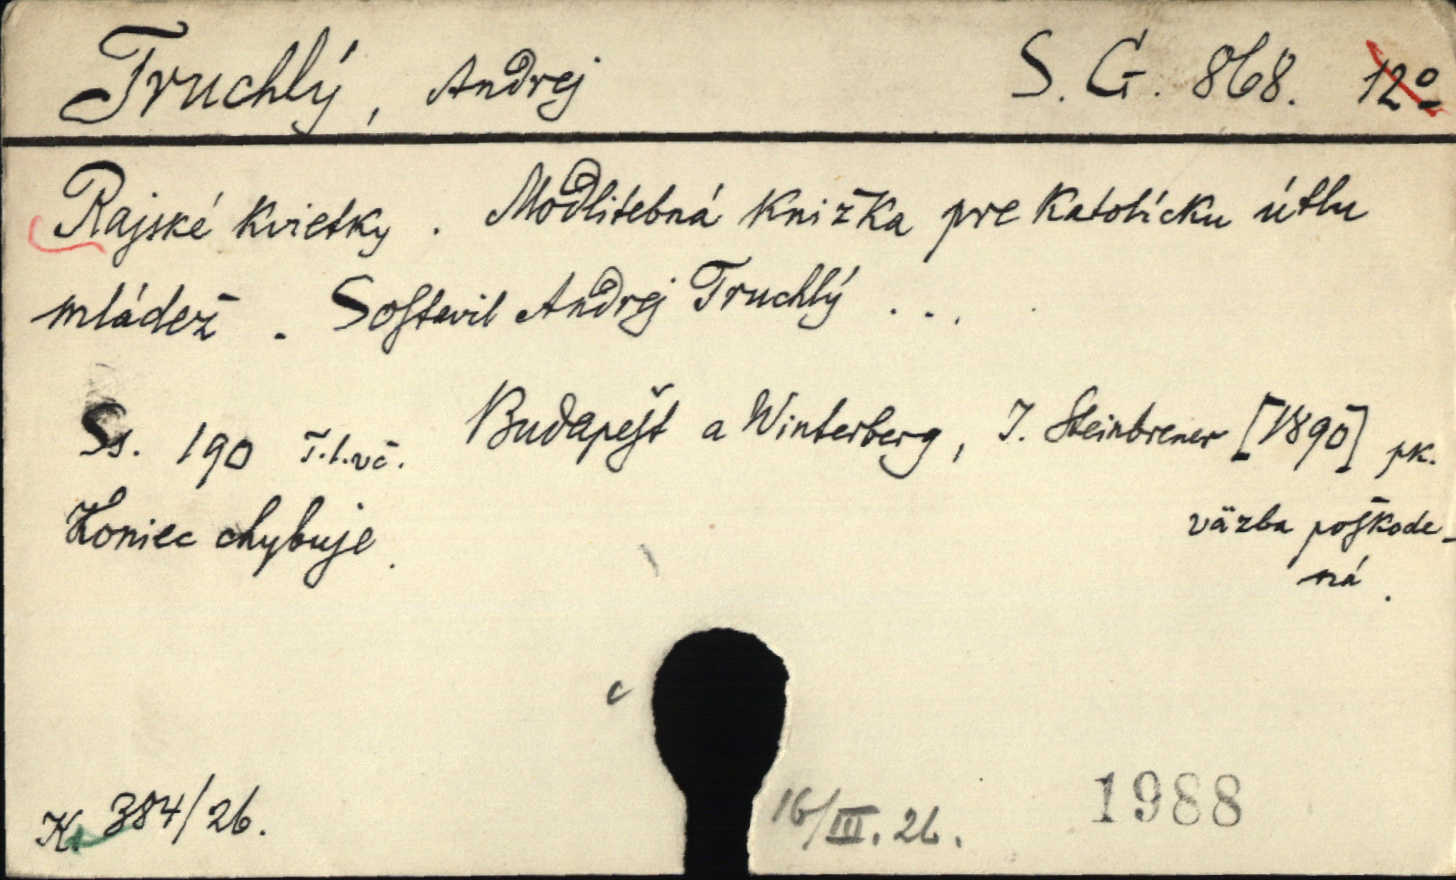 Truchlý, Andrej S. G. 868. 12º
Rajské kvietky. Modlitebná knižka pre katolícku útlu
mládež. Sostavil Andrej Truchlý ...
Ss. 190 T.l.vč. Budapešt a Winterberg, J. Steinbrener [1890] pk.
Koniec chybuje.
väzba poškode-
ná.
c
K. 384/26.
16/III. 26.
1988